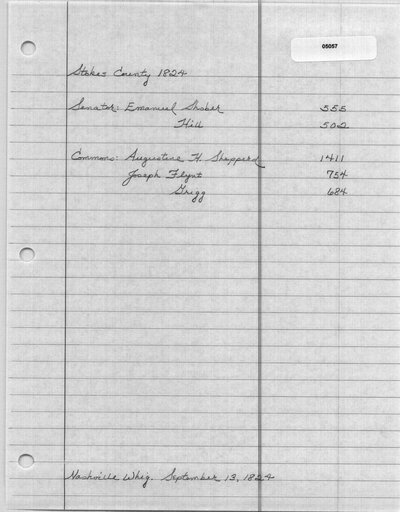 05057
Stokes County 1824
Senator: Emanuel Shober 555
Hill 502
Commons: Augustine H. Shepperd 1411
Joseph Flynt 754
Grigg 684
Nashville Whig. September 13, 1824